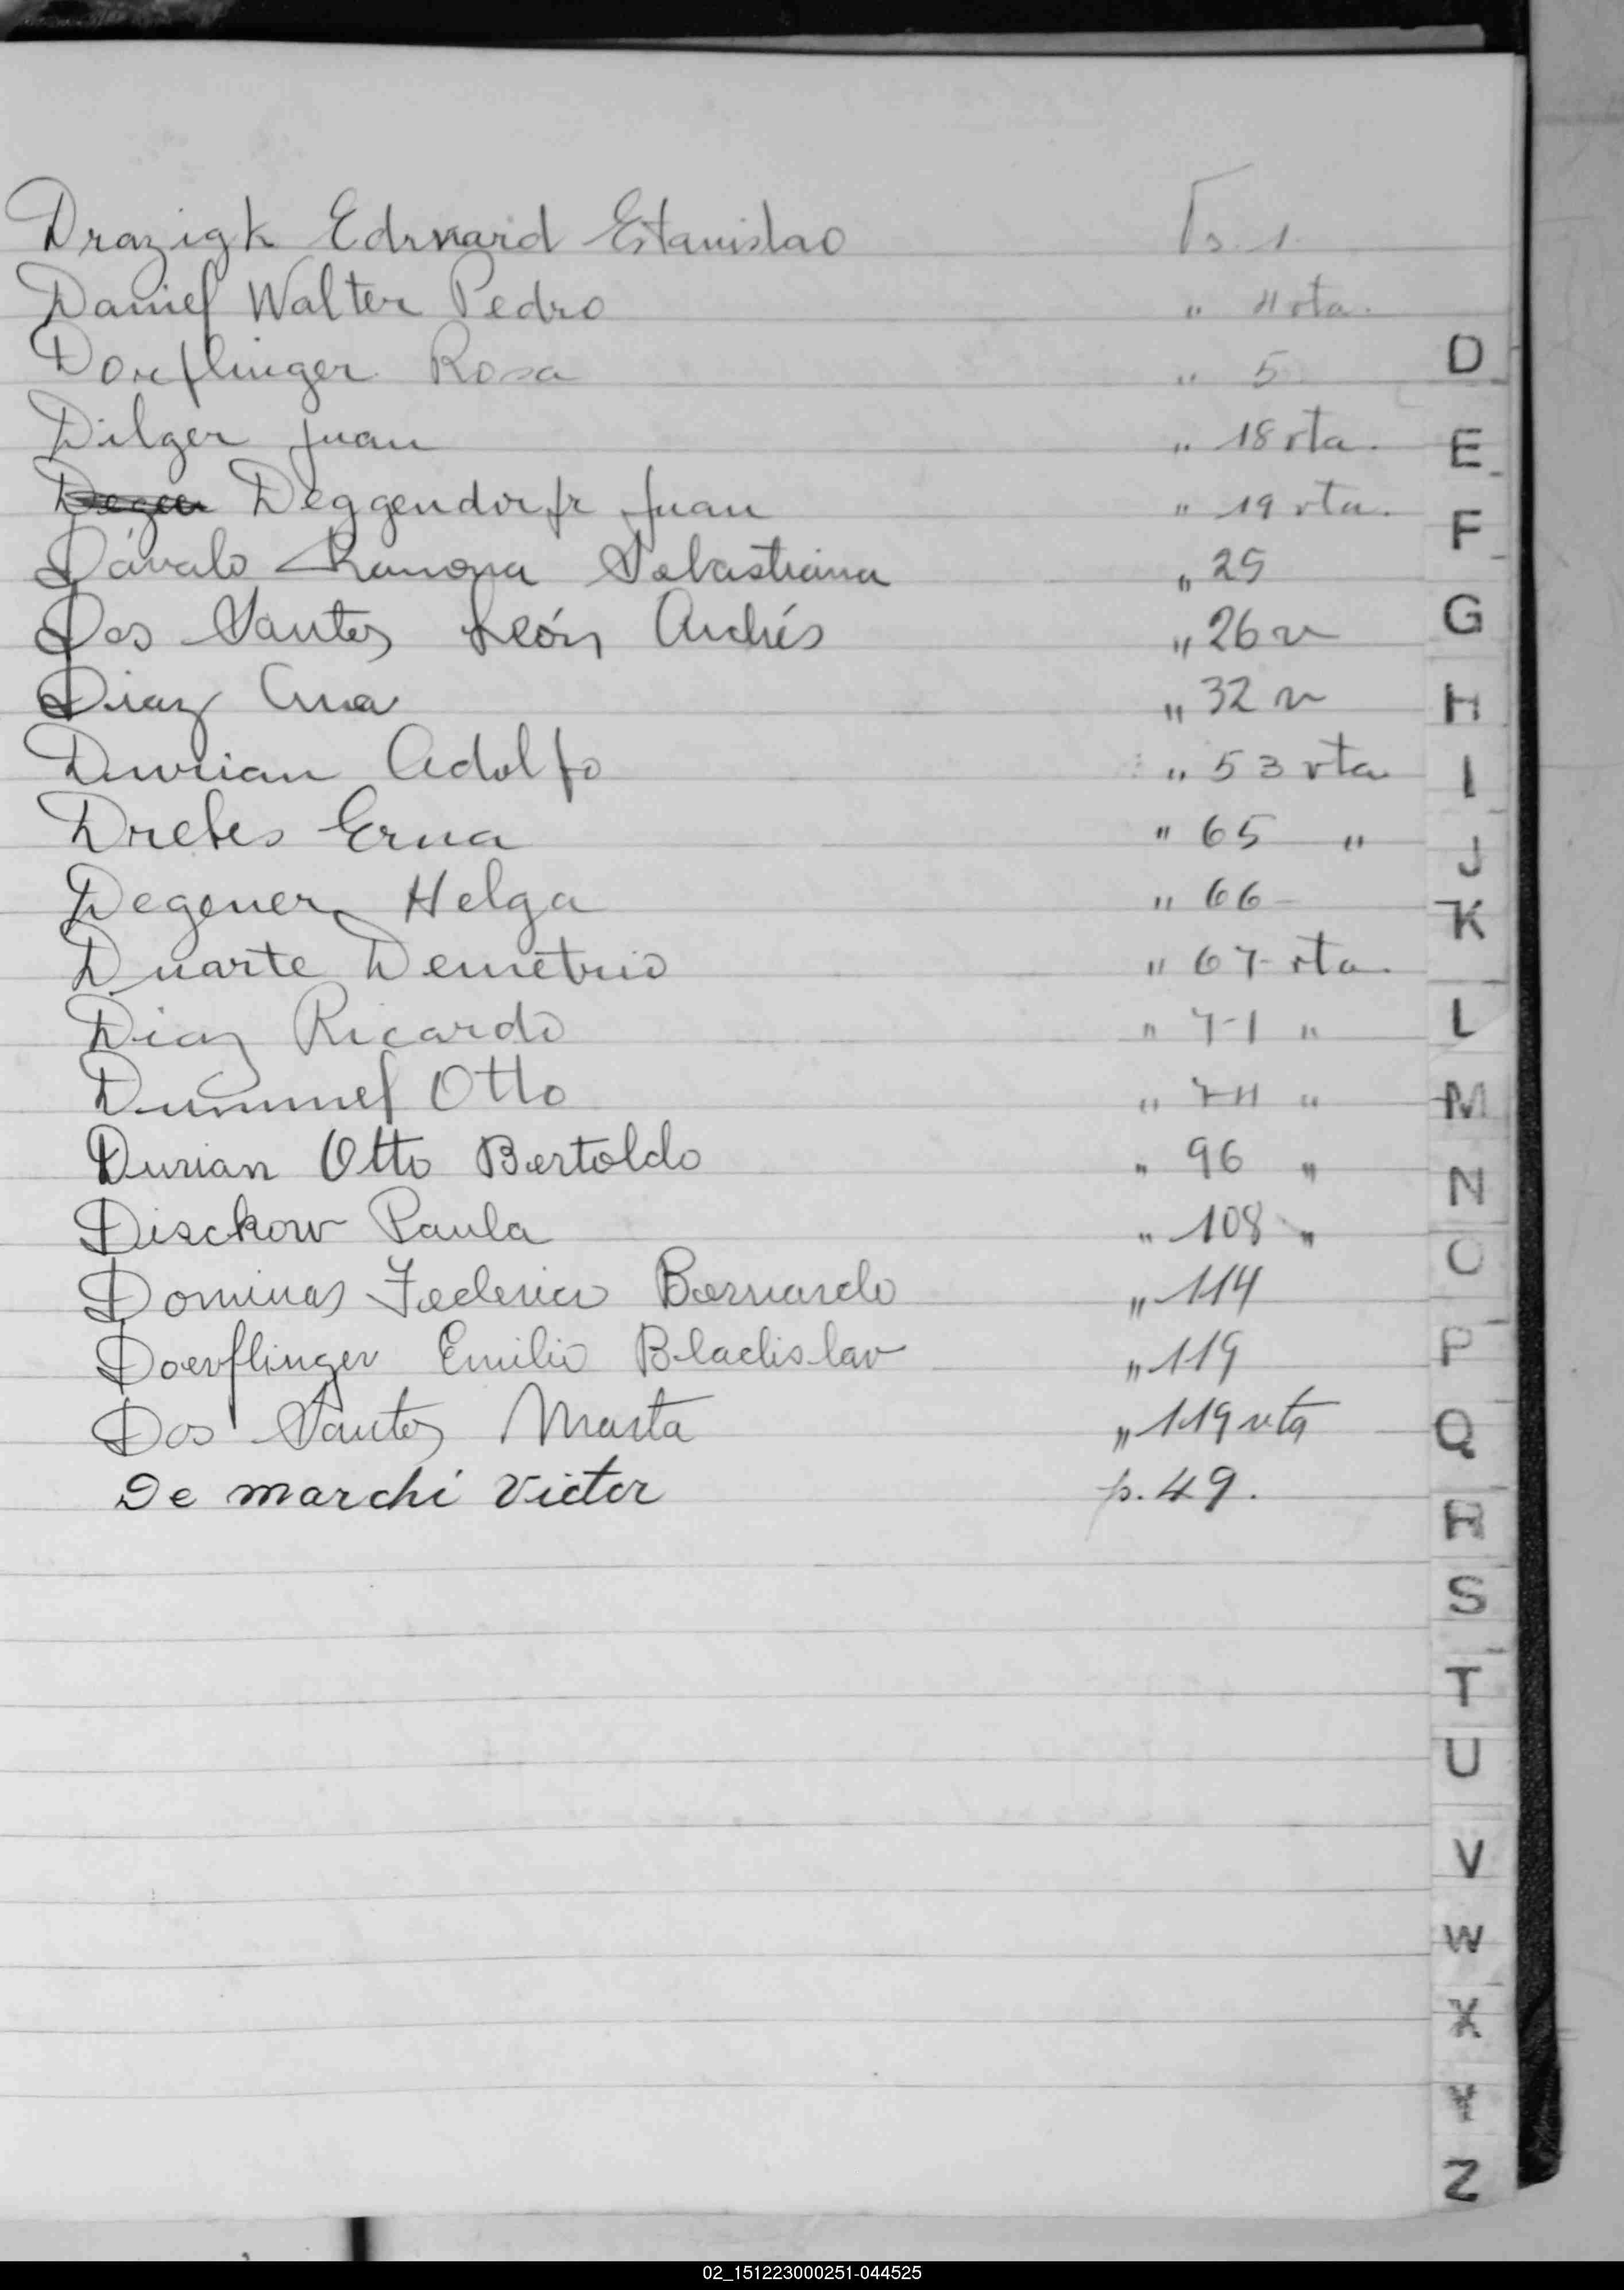 Drazigk Edward Estanislao Fs. 1.
Daniel Walter Pedro " 4 vta.
Doerflinger Rosa " 5
Dilger Juan " 18 vta.
Deggendorfr Juan " 19 vta.
Dávalo Ramona Sebastiana " 25
Dos Santos León Andrés " 26 v
Diaz Ana " 32 v
Durian Adolfo " 53 vta
Drebes Erna " 65 "
Degener Helga " 66 -
Duarte Demetrio " 67 vta.
Diaz Ricardo " 71 "
Dummel Otto " 74 "
Durian Otto Bertoldo " 96 "
Disckow Paula " 108 "
Dominas Federico Bernardo " 114
Doerflinger Emilio Bladislav " 119
Dos Santos Marta " 119 vta
De marchi Victor p. 49.
D
E
F
G
H
I
J
K
L
M
N
O
P
Q
R
S
T
U
V
W
X
Y
Z
02_151223000251-044525